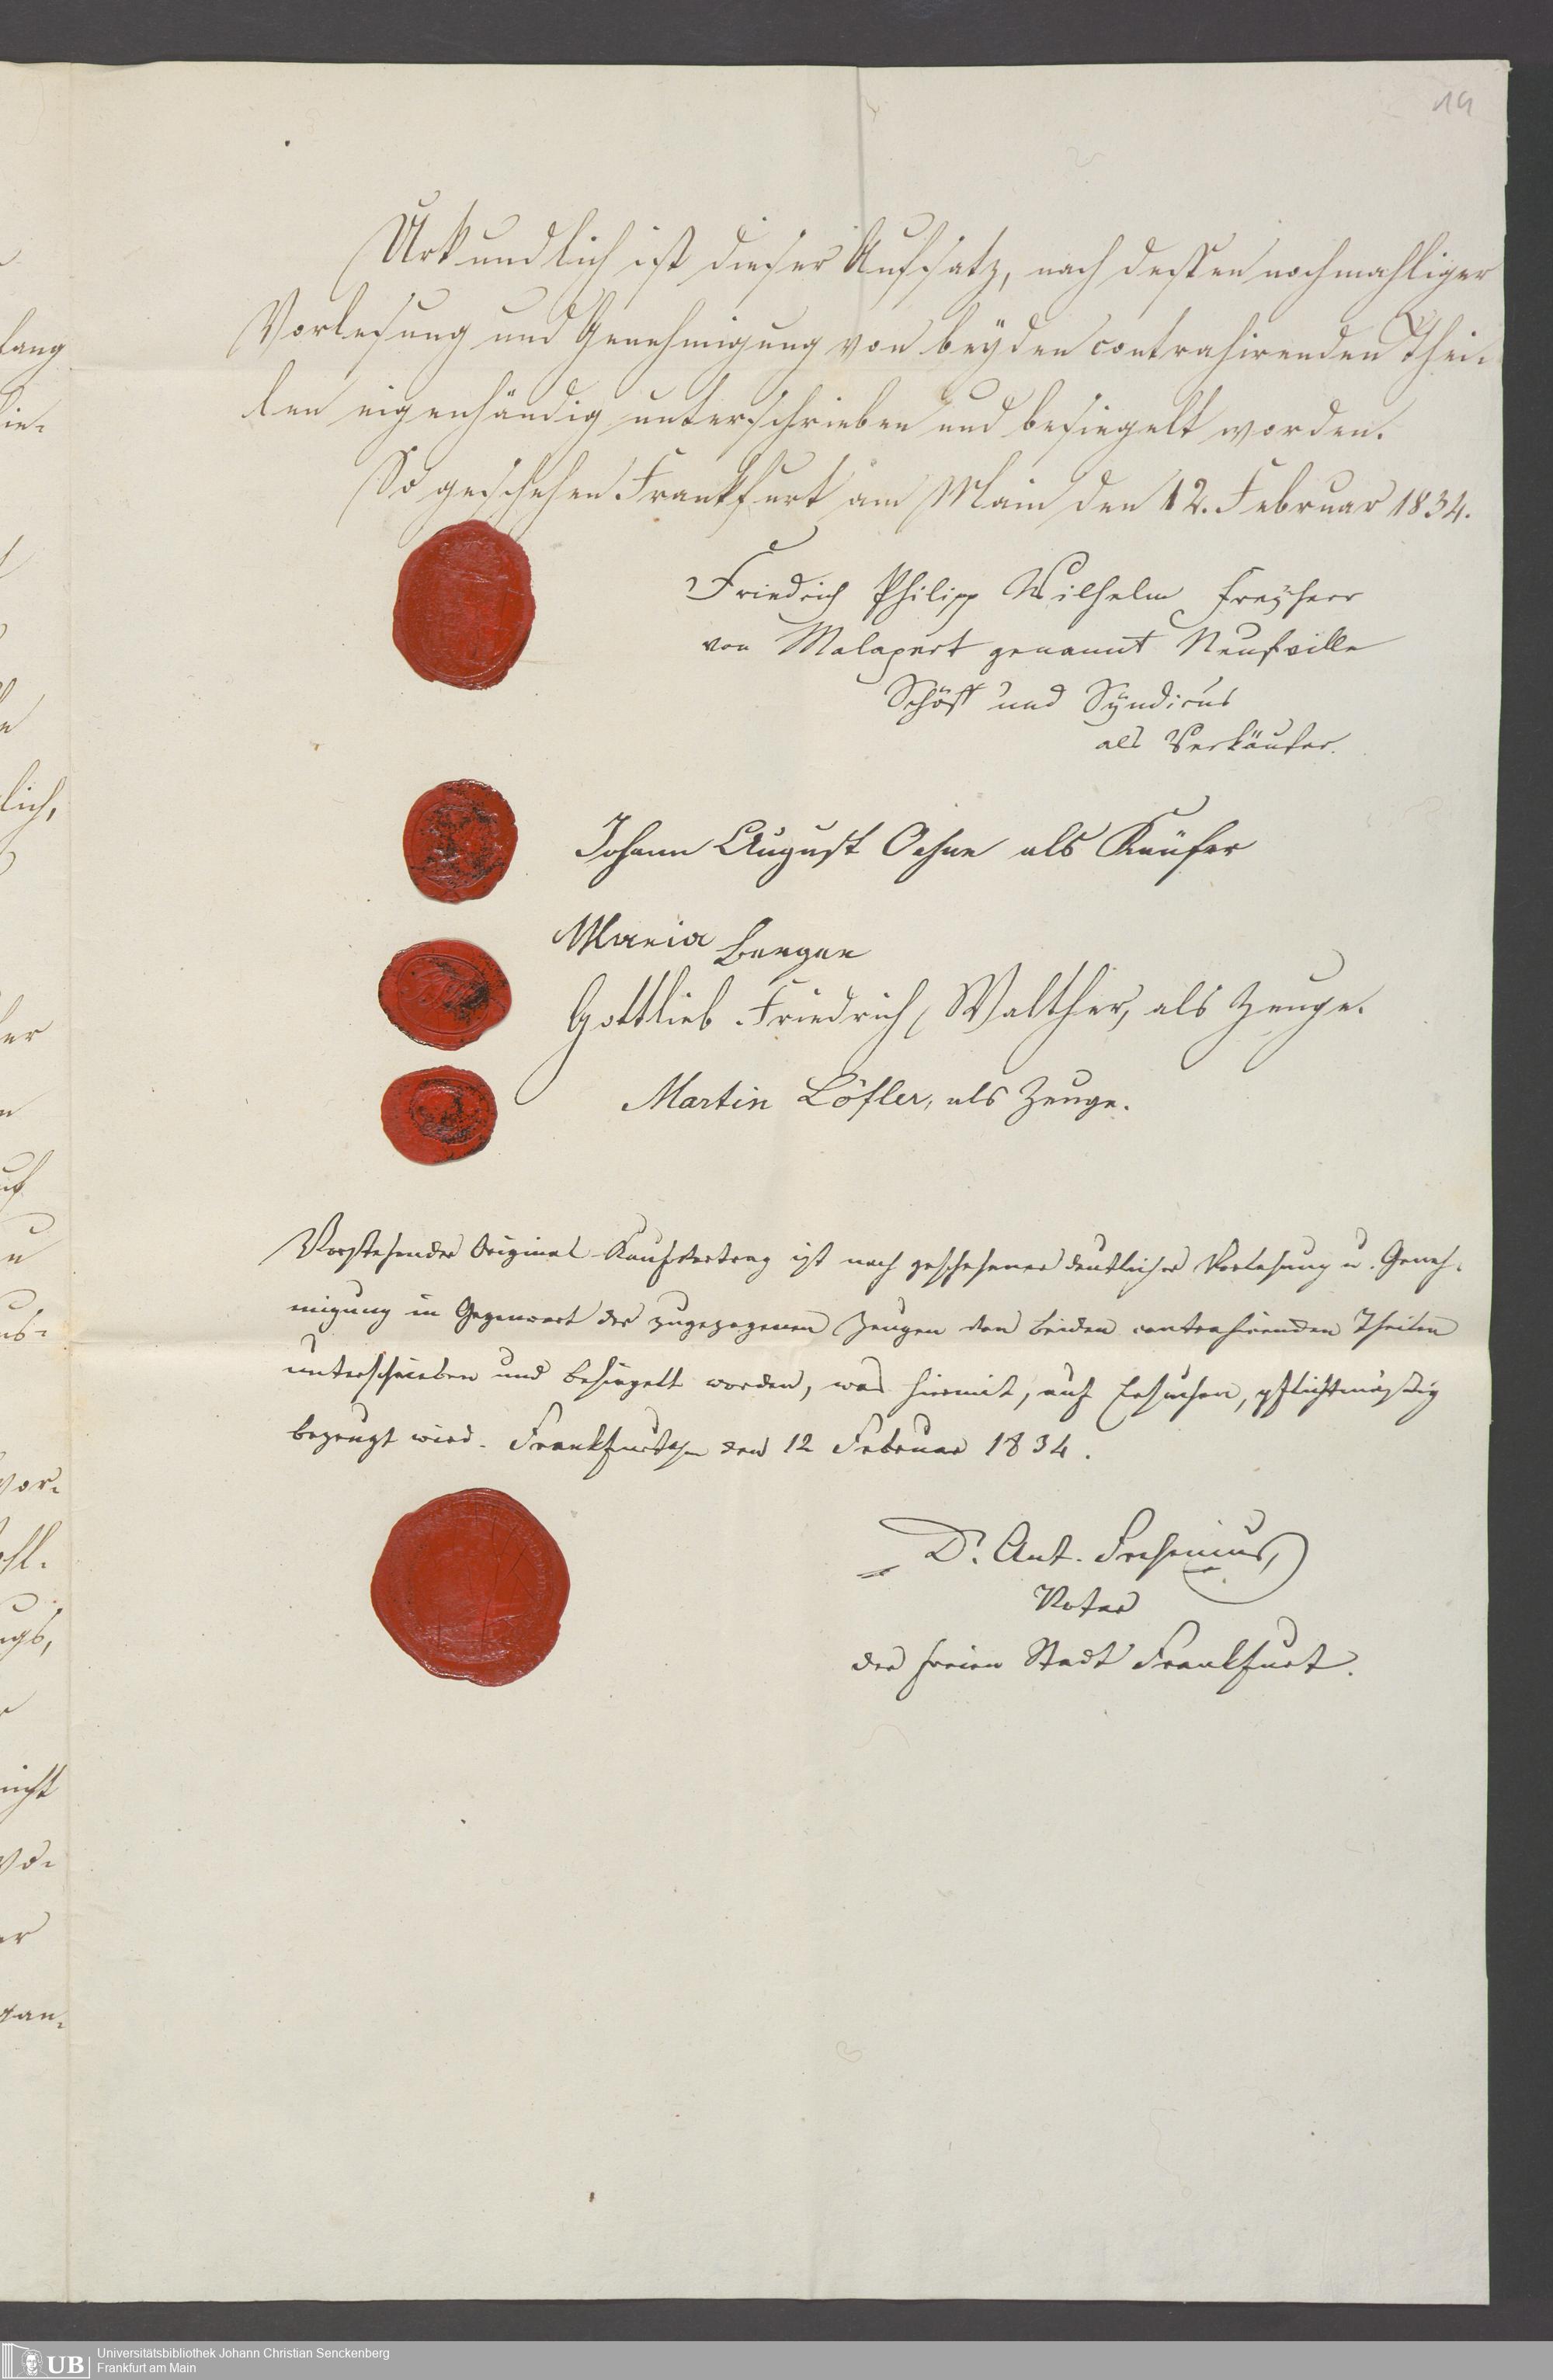 19
Urkundlich ist dieser Aufsatz, nach dessen nochmahliger
Vorlesung und Genehmigung von beyden contrahirenden Thei-
len eigenhändig unterschrieben und besiegelt worden.
So geschehen Frankfurt am Main den 12. Februar 1834.
Friedrich Philipp Wilhelm Freyherr
von Malapert genannt Neufville
Schöff und Syndicus
als Verkäufer.
Johann August Oehne als Käufer
Maria
Gottlieb Friedrich Walther, als Zeuge.
Martin Löfler, als Zeuge.
Vorstehender Original-Kaufvertrag ist nach geschehener deutlicher Vorlesung u. Geneh-
migung in Gegenwart der zugezogenen Zeugen von beiden contrahirenden Theilen
unterschrieben und besiegelt worden, was hiermit, auf Ersuchen, pflichtmäßig
bezeugt wird. Frankfurt a/m den 12 Februar 1834.
Dr. Ant. Fresenius,
Notar
der freien Stadt Frankfurt.
lang
lich,
vor-
nicht
gan-
UB
Universitätsbibliothek Johann Christian Senckenberg
Frankfurt am Main